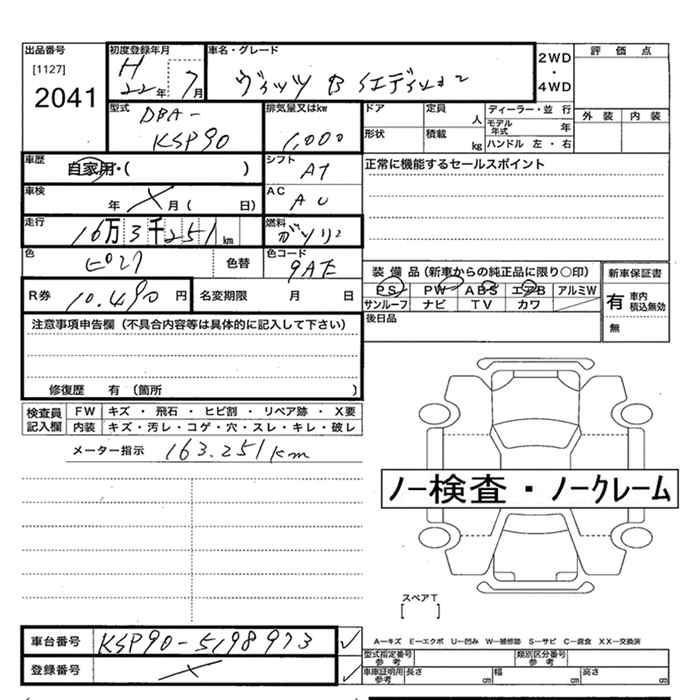 出品番号
[1127]
2041
初度登録年月
H
22年 7月
車名・グレード
ヴィッツ B Iエディション
2WD
・
4WD
評 価 点
外 装 内 装
型式
DBA-
KSP90
排気量又はkw
1,000
ドア
形状
定員
人
積載
kg
ディーラー・並 行
モデル
年式
年
ハンドル 左 ・ 右
車歴
自家用・( )
シフト
AT
正常に機能するセールスポイント
車検
年 X 月( 日)
AC
走行
16万3千251km
燃料
ガソリン
色
ピンク
色替
色コード
9AE
装 備 品(新車からの純正品に限り○印)
PS PW ABS エアB アルミW
サンルーフ ナビ TV カワ
新車保証書
有 車内
積込無効
無
R券
10.490円
名変期限 月 日
後日品
注意事項申告欄(不具合内容等は具体的に記入して下さい)
修復歴 有(箇所 )
検査員
記入欄
FW キズ ・ 飛石 ・ ヒビ割 ・ リペア跡 ・ X要
内装 キズ・汚レ・コゲ・穴・スレ・キレ・破レ
メーター指示 163.251km
ノー検査・ノークレーム
スペアT
[ ]
車台番号
KSP90-5198973 ✓
登録番号
X ✓
A―キズ E―エクボ U―凹み W―補修跡 S―サビ C―腐食 XX―交換済
型式指定番号
参 考
類別区分番号
参 考
車庫証明用
参考
長さ cm 幅 cm 高さ cm